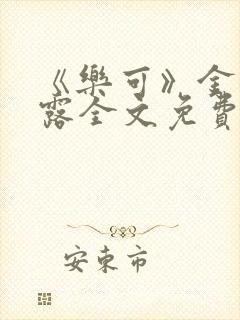 《樂可》金
露全文免費
安東市